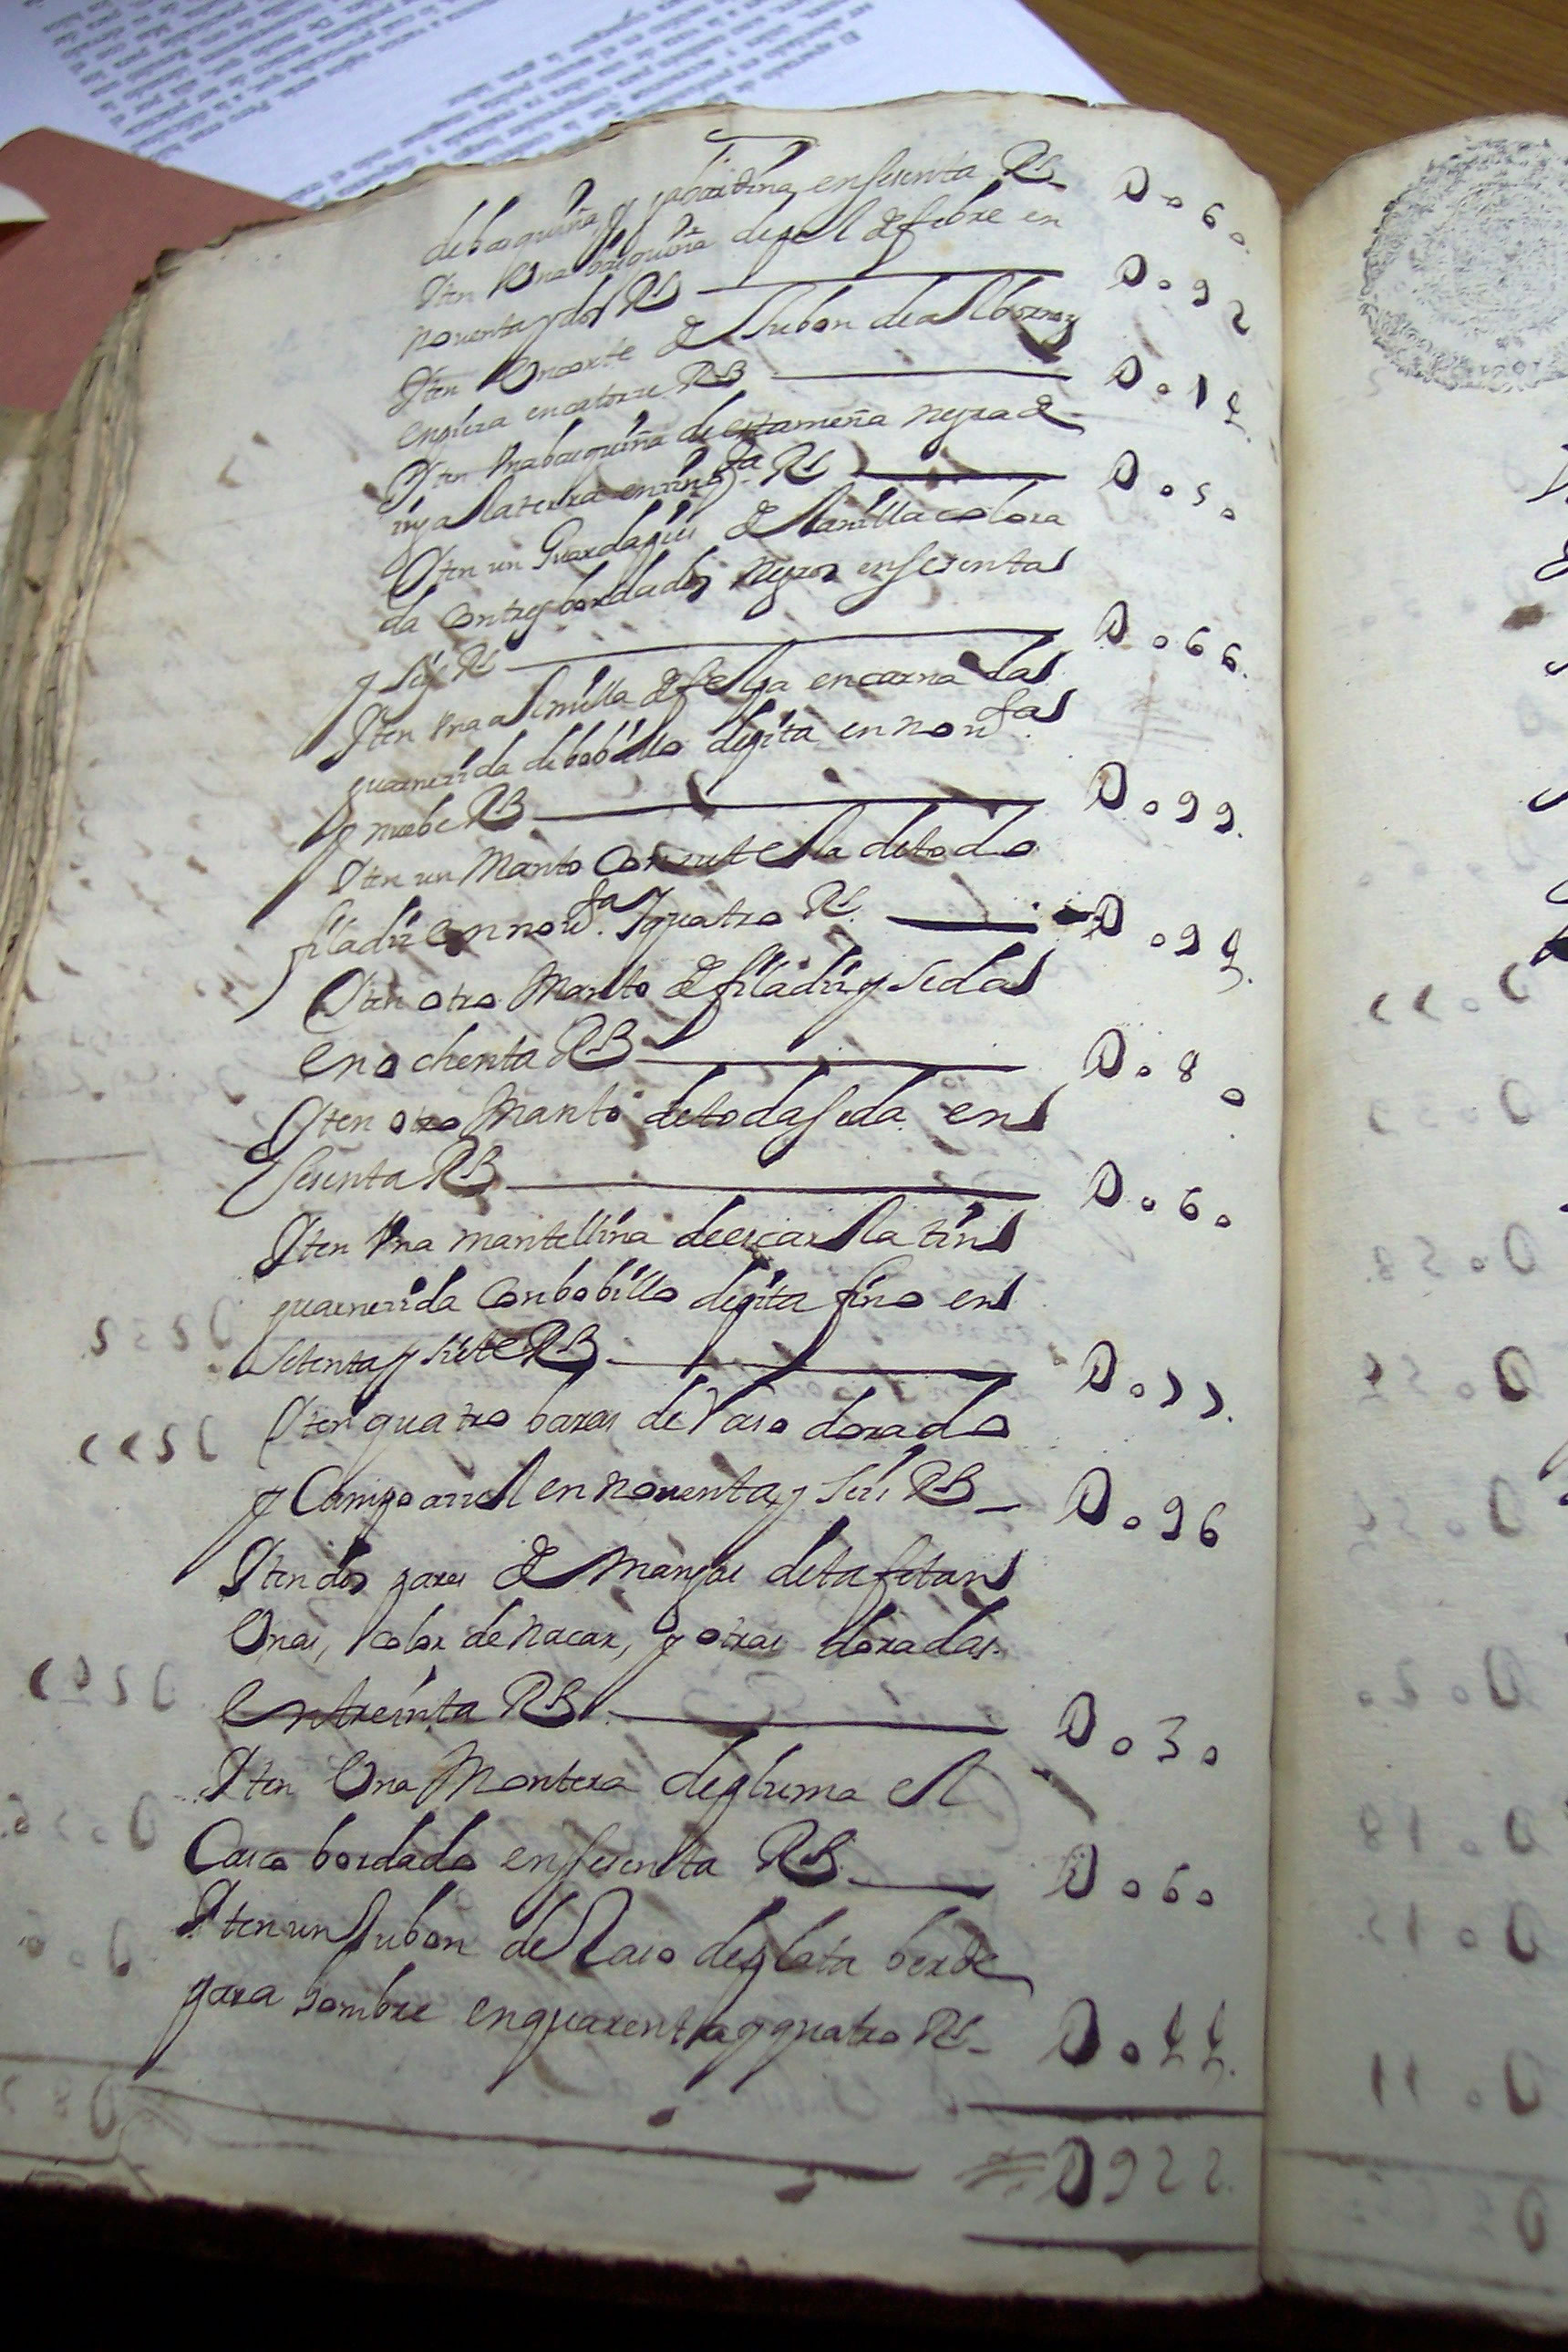 de basquiña y gabardina en sesenta Rs D060
Iten Una basquiña de pel de febre en
noventa y dos Rs D092
Iten Un corte de Jubon de albornoz
en pieza en catorze Rs D014
Iten Una basquiña de estameña negra de
inga laterra en cinqta Rs D050
Iten un Guardapies de lanilla colora
da con tres bordados negros en sesenta
y seis Rs D066.
Iten Una almilla de felpa encarnada
guarnezida de bobillo de pita en novta
y nuebe Rs D099.
Iten un Manto de todo
filadiz en novta Y quatro Rs D094.
Iten otro Manto de filadiz y seda
en ochenta Rs D080
Iten otro Manto de toda seda en
sesenta Rs D060
Iten Una mantellina de escarlatin
guarnezida Con bobillo de pita fino en
setenta y siete Rs D077.
Iten quatro baras de Raso dorado
y Campo azul en noventa y seis Rs D096
Iten dos pares de Mangas de tafetan
Unas, color de nacar, y otras doradas.
en treinta Rs D030
Iten Una Montera de pluma el
Casco bordado en sesenta Rs D060
Iten un Jubon de Raso de plata berde
para hombre en quarenta y quatro Rs D044.
D922.